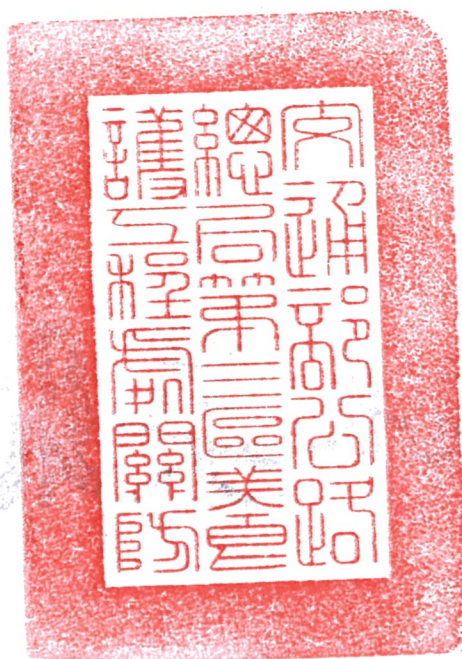 交通部公路
總局第三區養
護工程處關防